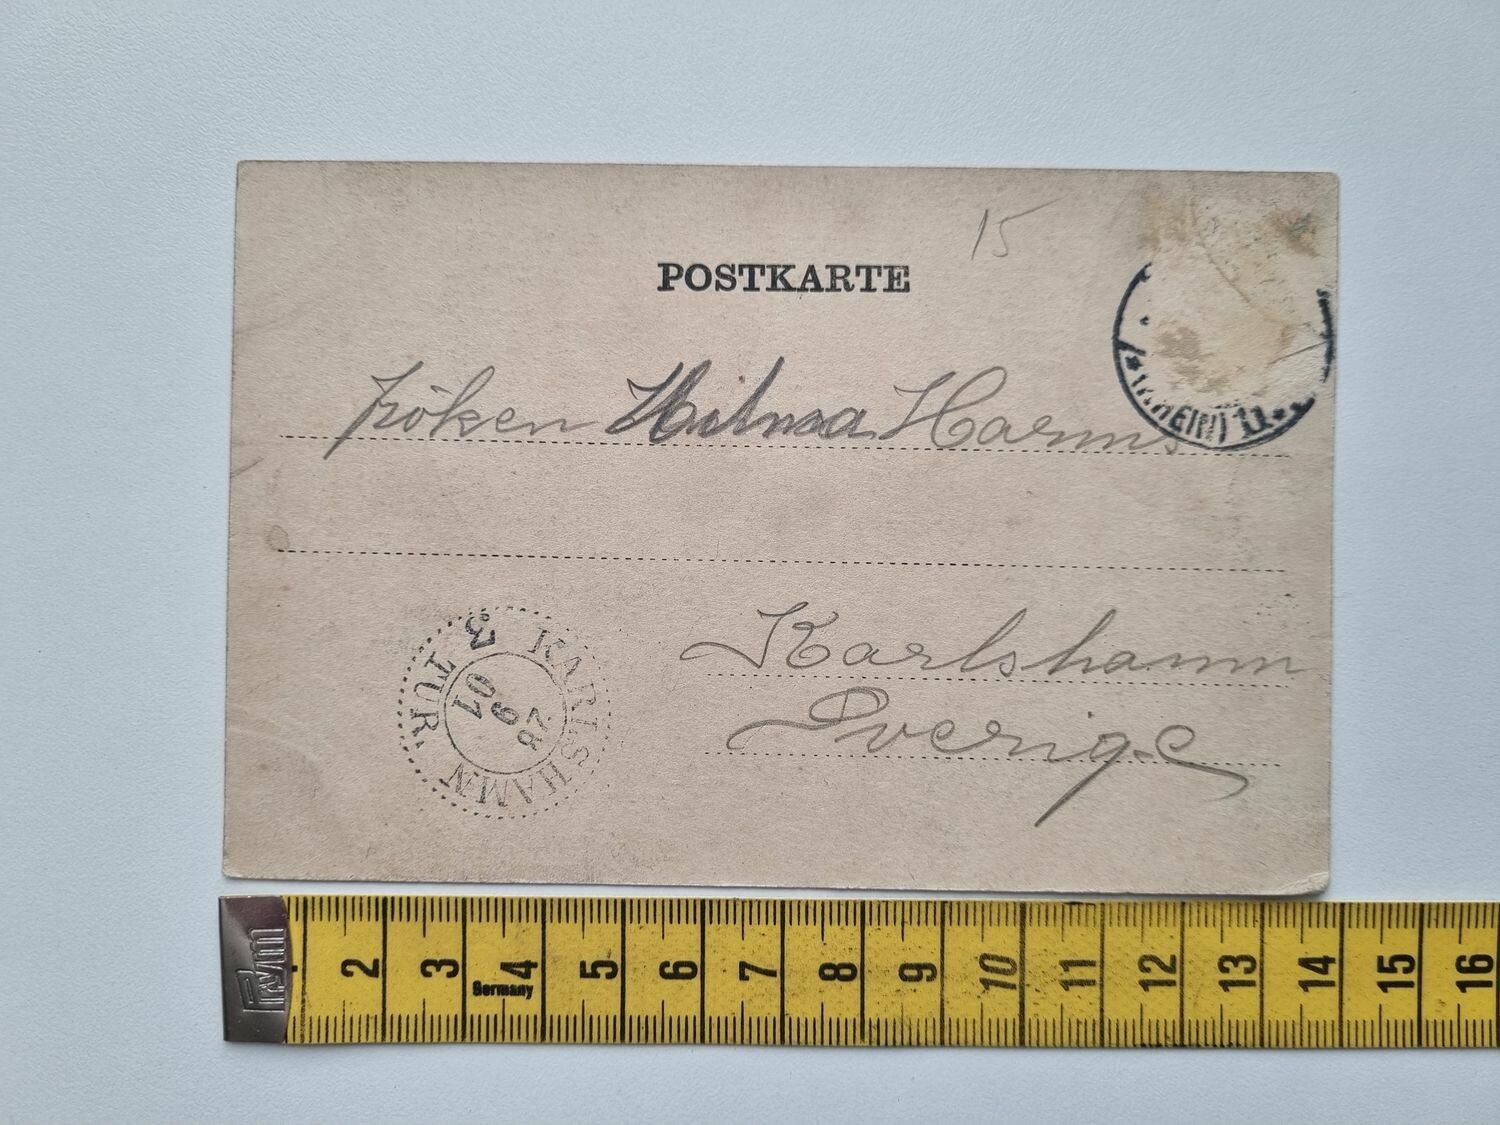 15
POSTKARTE
Fröken Hilma Harms
(RHEIN) 11
Karlshamn
Sverige
KARLSHAMN
TUR 3
28
9
07
Prym
2 3 4 5 6 7 8 9 10 11 12 13 14 15 16
Germany